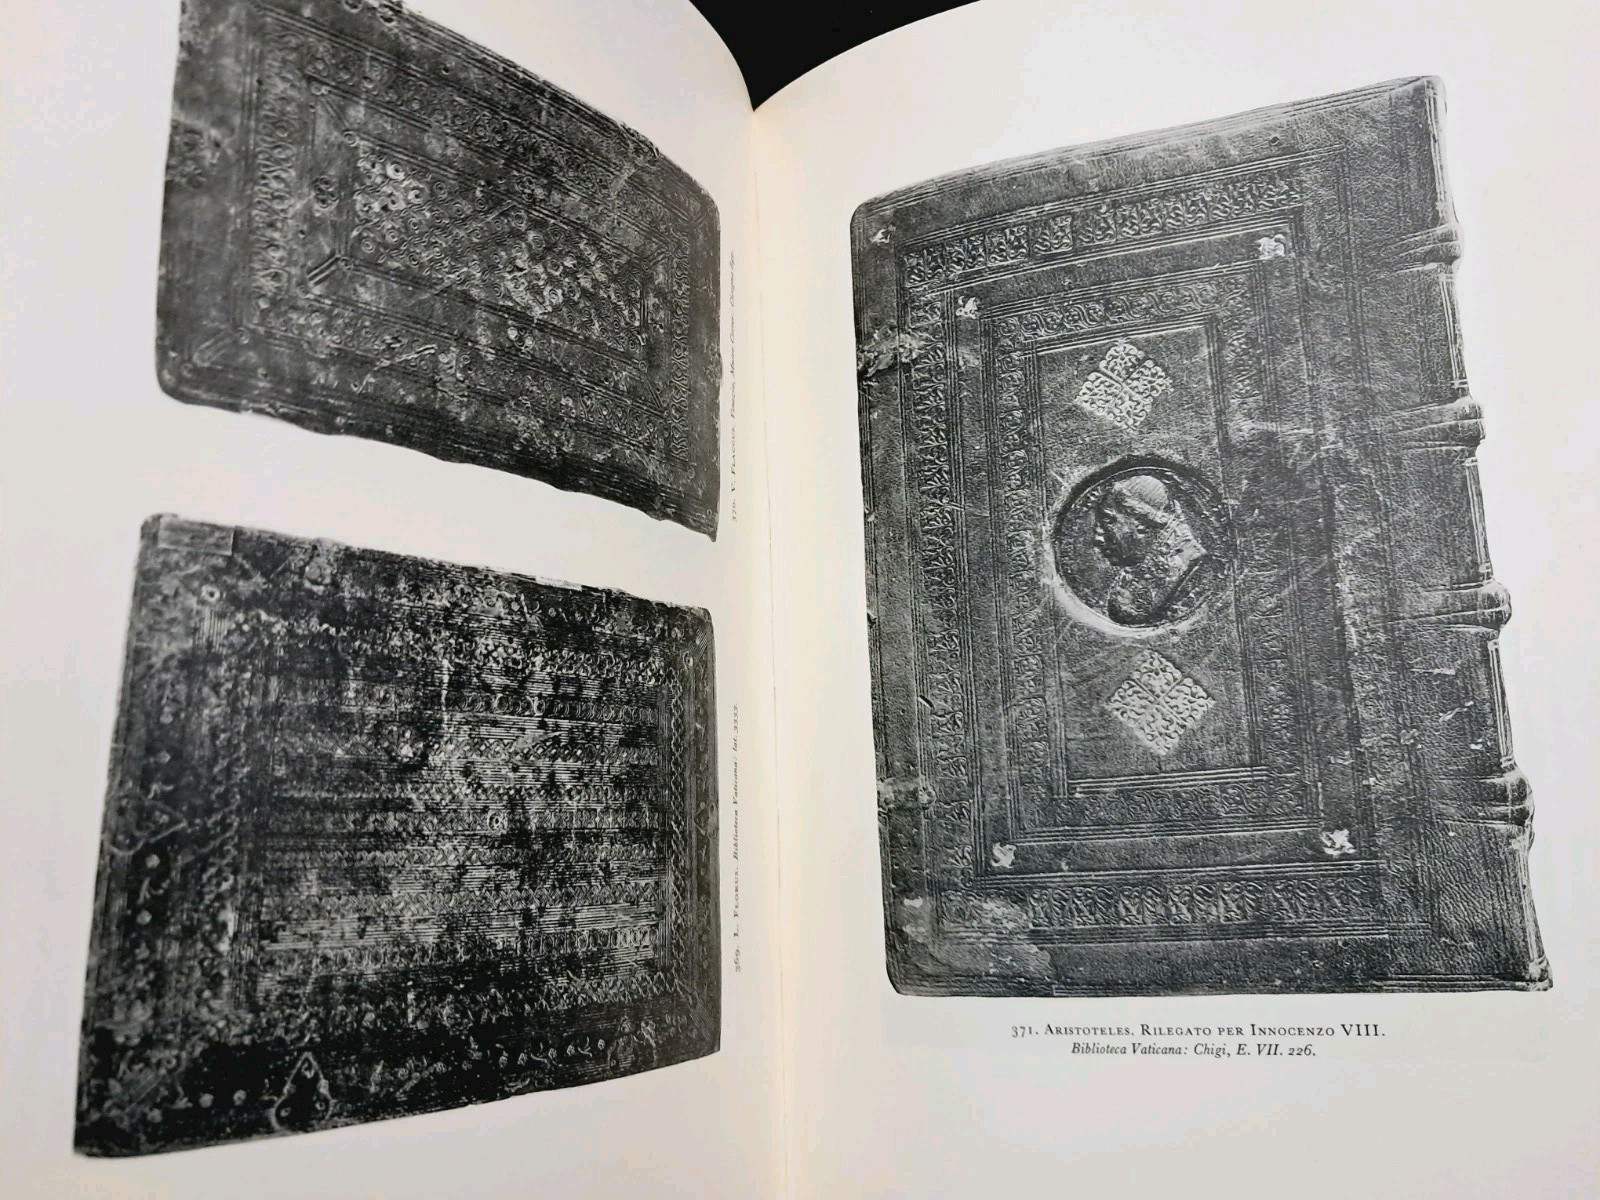 370. V. FLACCUS.
369. L. FLORUS. Biblioteca Vaticana: lat. 3333.
371. ARISTOTELES. RILEGATO PER INNOCENZO VIII.
Biblioteca Vaticana: Chigi, E. VII. 226.